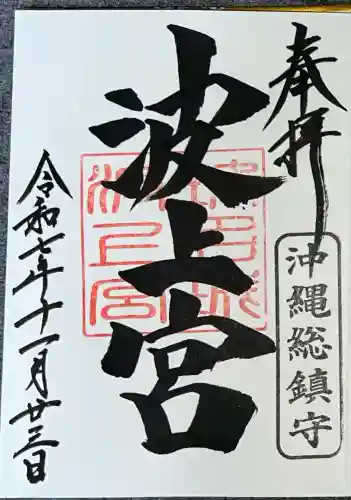 奉拝
沖縄総鎮守
波上宮
令和七年十一月廿三日